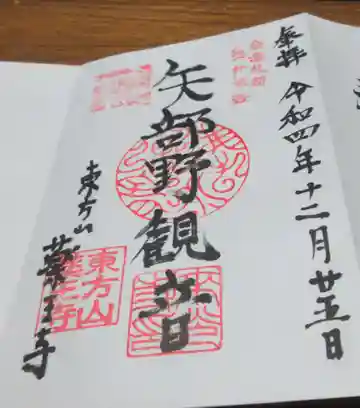 奉拝
令和四年十二月廿五日
矢部野観音
東方山
薬王寺
東方山
薬王寺